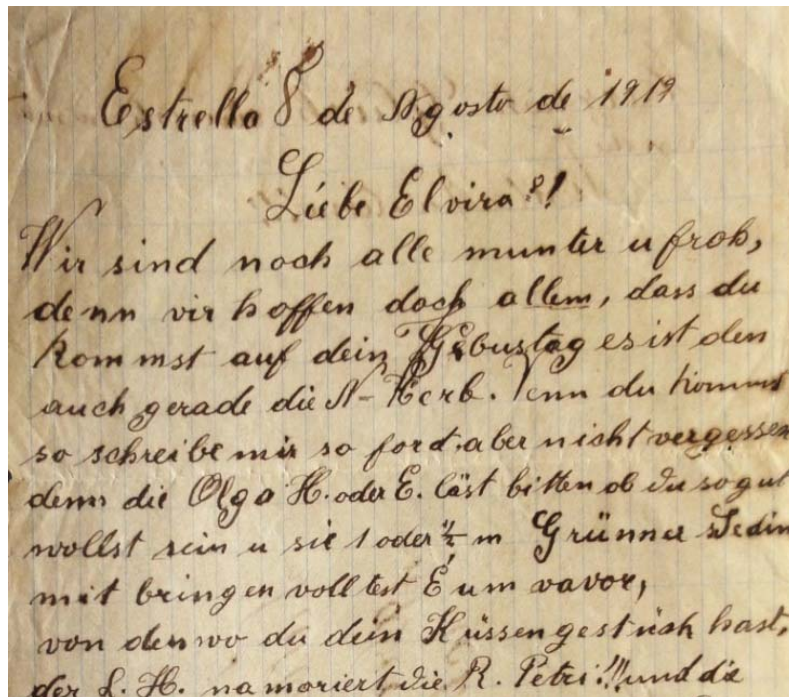 Estrella 8 de Agosto de 1919
Liebe Elvira!
Wir sind noch alle munter u froh,
denn vir hoffen doch allem, dass du
kommst auf dein Gebustag es ist den
auch gerade die N-Kerb. Venn du kommst
so schreibe mir so fort aber nicht vergessen
denn die Olga H. oder E. läst bitten ob du so gut
wollst sein u sie 1 oder ½ m Grünner Sedin
mit bringen volltest É um vavor,
von den wo du dein Küssen gestückt hast,
der L. H. namoriert die R. Petri!!! und die